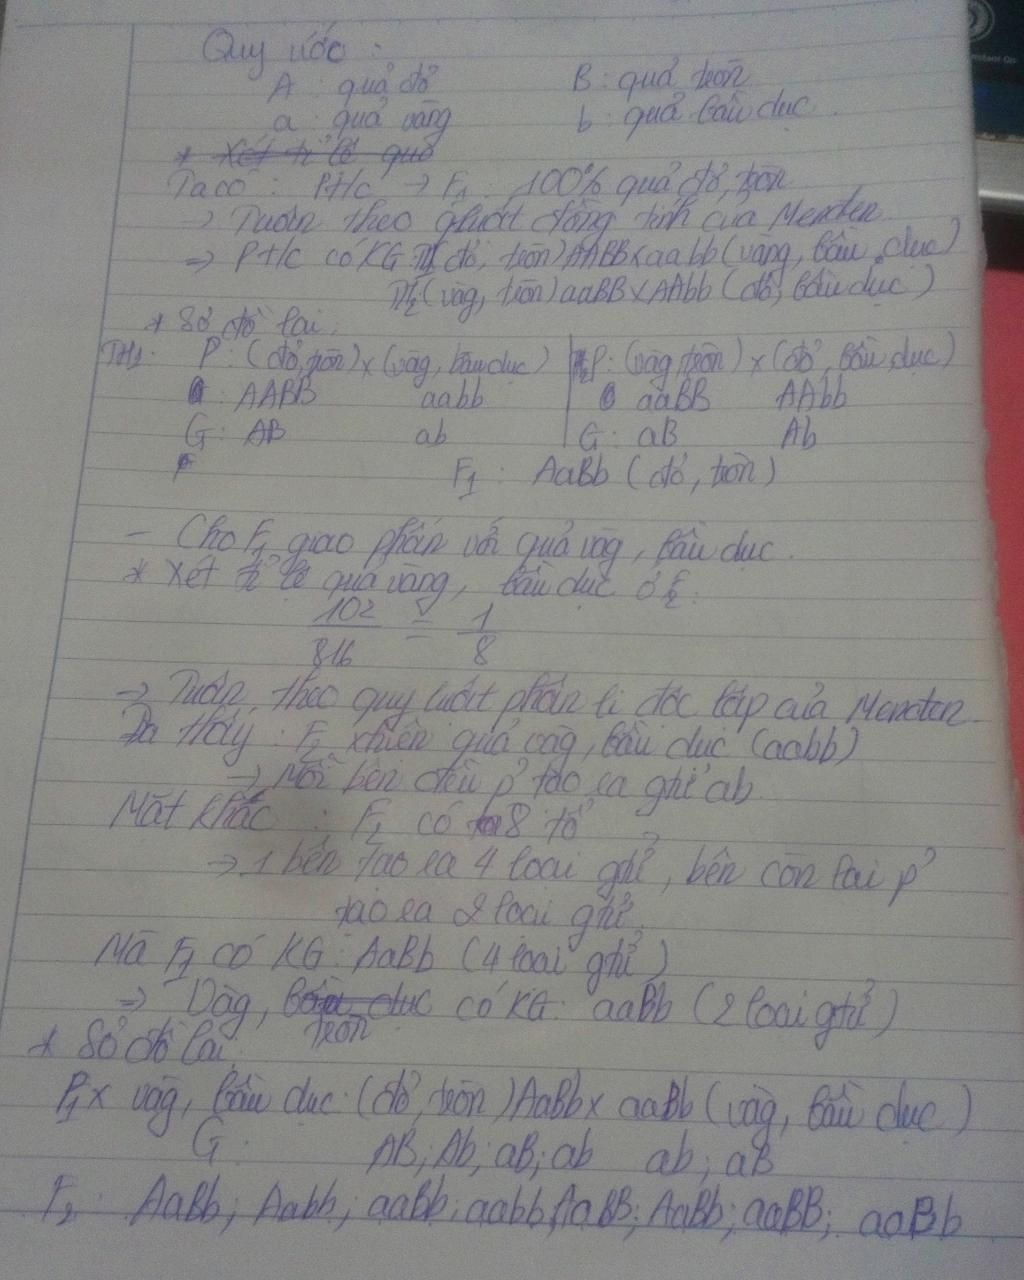 Quy ước :
A : quả đỏ B : quả tròn
a : quả vàng b : quả bầu dục
* Xét tỉ lệ quả
Ta có : Pt/c → F1 : 100% quả đỏ, tròn
→ Tuân theo qluật đồng tính của Menđen
=> Pt/c có KG TH1 (đỏ, tròn) AABB x aabb (vàng, bầu dục)
TH2 (vàg, tròn) aaBB x AAbb (đỏ, bầu dục)
* Sơ đồ lai :
TH1 : P : (đỏ, tròn) x (vàg, bầu dục) P : (vàg, tròn) x (đỏ, bầu dục)
: AABB aabb aaBB AAbb
G : AB ab G : aB Ab
F1 : AaBb (đỏ, tròn)
- Cho F1 giao phấn với quả vàg, bầu dục.
* Xét tỉ lệ quả vàng, bầu dục ở F2 :
102/816 = 1/8
→ Tuân theo quy luật phân li độc lập của Menđen
Ta thấy : F2 xhiện quả vàg, bầu dục (aabb)
→ Mỗi bên đều p' tạo ra gtử ab
Mặt khác : F2 có 8 tổ
→ 1 bên tạo ra 4 loại gtử, bên còn lại p'
tạo ra 2 loại gtử.
Mà F1 có KG : AaBb (4 loại gtử)
=> Vàg, bầu dục có KG : aaBb (2 loại gtử)
tròn
* Sơ đồ lai :
F1 x vàg, bầu dục : (đỏ, tròn) AaBb x aaBb (vàg, bầu dục)
G : AB; Ab; aB; ab ab; aB
F2 : AaBb; Aabb; aaBb; aabb; AaBB; AaBb; aaBB; aaBb